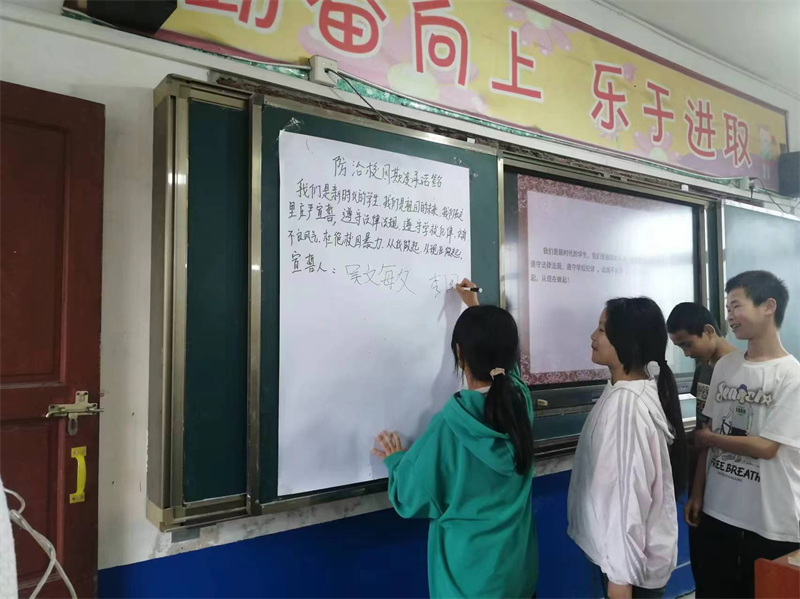 奋向上 乐于进取
防治校园欺凌承诺签名
我们是新时代的学生,我们是祖国的未来,我们在这
里庄严宣誓,遵守法律法规,遵守学校纪律,
不良风气,杜绝校园暴力,从我做起,从现在做起。
宣誓人:吴文每文
我们是新时代的学生,我们
遵守法律法规,遵守学校纪律,
起,从现在做起!
FREE BREATH